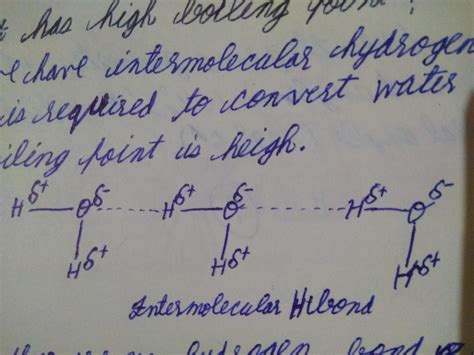 has high boiling point?
have intermolecular hydrogen
is required to convert water
iling point is heigh.
H^δ+ — O^δ- ------ H^δ+ — O^δ- ------ H^δ+ — O^δ-
H^δ+ H^δ+ H^δ+
Intermolecular H bond
hydrogen bond